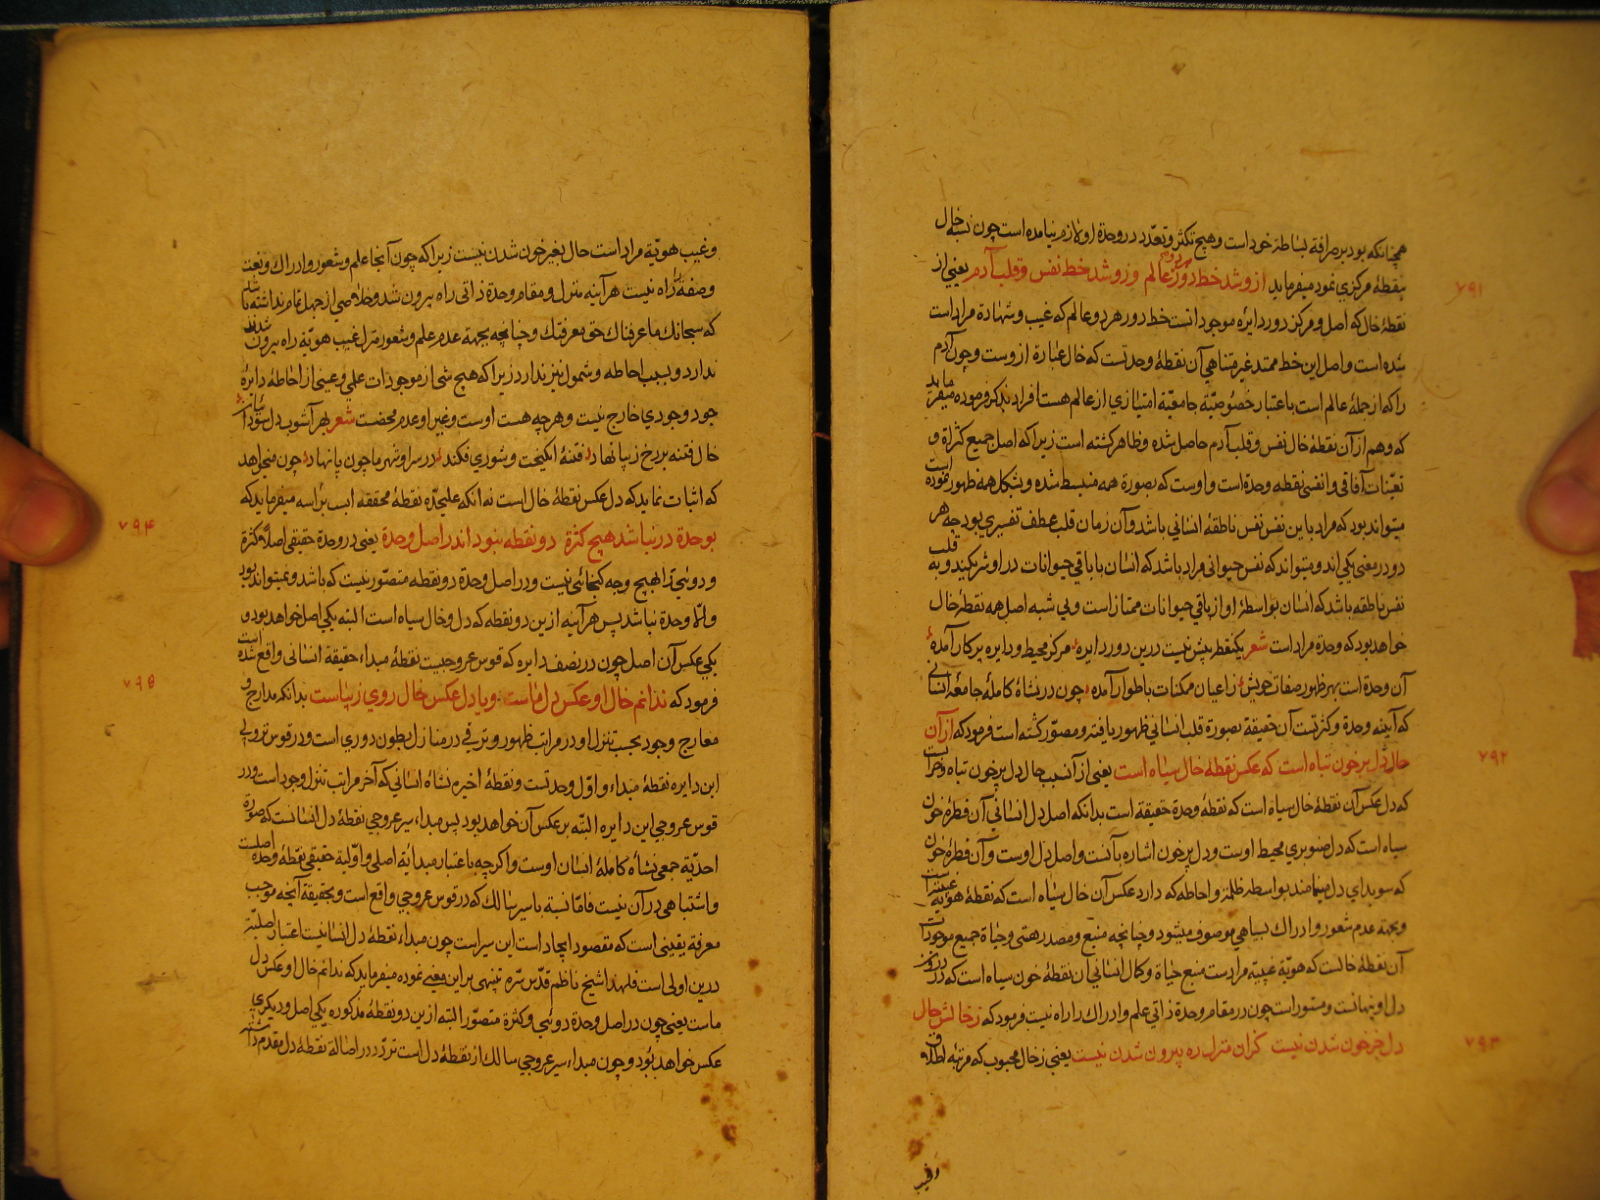 همچنانکه بود بر صرافة بساطة خود است و هیچ تکثر و تعدد در وحدة او لازم نیامده است چون نسبه خال
بنقطهٔ مرکزی نمود میفرماید ازو شد خط دور هر دو عالم وزو شد خط نفس و قلب آدم یعنی از
۷۹۱
نقطهٔ خال که اصل و مرکز دور دایره موجوداتست خط دور هر دو عالم که غیب و شهادة مراد است
شده است و اصل این خط ممتد غیر متناهی آن نقطهٔ وحدتست که خال عبارة ازوست و چون آدم
را که از جملهٔ عالم است باعتبار خصوصیة جامعیة امتیازی از عالم هست افراد بذکر فرموده میفرماید
که و هم از آن نقطهٔ خال نفس و قلب آدم حاصل شده و ظاهر گشته است زیرا که اصل جمیع کثراة و
تعینات آفاقی و انفسی نقطهٔ وحدة است و اوست که بصورة همه منبسط شده و بشکل همه ظهور نموده است
میتواند بود که مراد باین نفس نفس ناطقهٔ انسانی باشد و آن زمان قلب عطف تفسیری بود چه هر
دو در معنی یکی اند و میتواند که نفس حیوانی مراد باشد که انسان با باقی حیوانات در او شریکند و به قلب
نفس ناطقه باشد که انسان بواسطهٔ او از باقی حیوانات ممتاز است و بی شبه اصل همه نقطهٔ خال
خواهد بود که وحدة مراد است شعر یکنقطه بیش نیست درین دور دایره مرکز محیط و دایره پرکار آمده
آن وحدة است بهر ظهور صفات خویش ز اعیان ممکنات باطوار آمده چون در نشاة کاملهٔ جامعهٔ انسانی
که آینه وحدة و کثرتست آن حقیقة بصورة قلب انسانی ظهور یافته و مصور گشته است فرمود که از آن
حال دل پر خون تباه است که عکس نقطهٔ خال سیاه است یعنی از آنسبب حال دل پر خون تباه و خرابست
۷۹۲
که دل عکس آن نقطهٔ خال سیاه است که نقطهٔ وحدة حقیقة است بدانکه اصل دل انسانی آن قطرهٔ خون
سیاه است که دل صنوبری محیط اوست و دل پر خون اشاره بآنست و اصل دل اوست و آن قطرهٔ خون
که سویدای دل مینامند بواسطه ظلمة و احاطه که دارد عکس آن خال سیاه است که نقطهٔ هویة غیبیه است
و بجهة عدم شعور و ادراک بسیاهی موصوف میشود و چنانچه منبع و مصدر هستی و حیاة جمیع موجودات
آن نقطهٔ خالست که هویة غیبیه مراد است منبع حیاة و کمال انسانی آن نقطهٔ خون سیاه است که در درون
دل او نهانست و مستور است چون در مقام وحدة ذاتی علم و ادراک را راه نیست فرمود که ز خالش حال
دل جز خون شدن نیست کزان منزل ره بیرون شدن نیست یعنی ز خال محبوب که مرتبهٔ اطلاق
۷۹۳
وغیب
و غیب هویة مراد است حال بغیر خون شدن نیست زیرا که چون آنجا علم و شعور و ادراک و نعت
و صفة را راه نیست هر آینه منزل و مقام وحدة ذاتی راه بیرون شد و خلاصی از جهل تمام نداشته باشد
که سبحانک ما عرفناک حق معرفتک و چنانچه بجهة عدم علم و شعور منزل غیب هویة راه بیرون شدن
ندارد و بسبب احاطه و شمول نیز ندارد زیرا که هیچ شی از موجودات علمی و عینی از احاطهٔ دایرهٔ
وجود خارج نیست و هر چه هست اوست و غیر او عدم محضست شعر بهر آشوب دل سودا
خال فتنه بر رخ زیبا نهاد فتنهٔ انگیخت و شوری فکند در سرا و شهر ما چون پا نهاد چون میخواهد
که اثبات نماید که دل عکس نقطهٔ خال است نه آنکه علیحده نقطهٔ محققه است براسه میفرماید که
بوحدة در نباشد هیچ کثرة دو نقطه نبود اندر اصل وحدة یعنی در وحدة حقیقی اصلا کثرة
۷۹۴
و دوئی را بهیچ وجه گنجائی نیست و در اصل وحدة دو نقطه متصور نیست که باشد و نمیتواند بود
و الا وحدة نباشد پس هر آینه ازین دو نقطه که دل و خال سیاه است البته یکی اصل خواهد بود و
یکی عکس آن اصل چون در نصف دایره که قوس عروجیست نقطهٔ مبداء حقیقة انسانی واقع شده است
فرمود که ندانم خال او عکس دل ماست و یا دل عکس خال روی زیباست بدانکه مدارج و
۷۹۵
معارج وجود بحسب تنزل او در مراتب ظهور و ترقی در منازل بطون دوری است و در قوس نزولی
این دایره نقطهٔ مبداء و اول وحدتست و نقطهٔ اخیره نشاة انسانی که آخر مراتب تنزل وجود است و در
قوس عروجی این دایره البته بر عکس آن خواهد بود پس مبداء سیر عروجی نقطهٔ دل انسانست که صورة
احدیة جمعی نشاة کاملهٔ انسان اوست و اگر چه باعتبار مبدائة اصلی و اولیة حقیقی نقطهٔ وحدة اصلست
و اشتباهی در آن نیست فاما نسبة با سیر سالک که در قوس عروجی واقع است و بحقیقة آنچه موجب
معرفة یقینی است که مقصود ایجاد است این سیر است چون مبداء نقطهٔ دل انسانیست اعتبار اصلیة
درین اولی است فلهذا شیخ ناظم قدس سره تنبیهی بر این معنی نموده میفرماید که ندانم خال او عکس دل
ماست یعنی چون در اصل وحدة دوئی و کثرة متصور البته ازین دو نقطهٔ مذکوره یکی اصل و دیگری
عکس خواهد بود و چون مبداء سیر عروجی سالک از نقطهٔ دل است تردد در اصالة نقطهٔ دل مقدم داشته